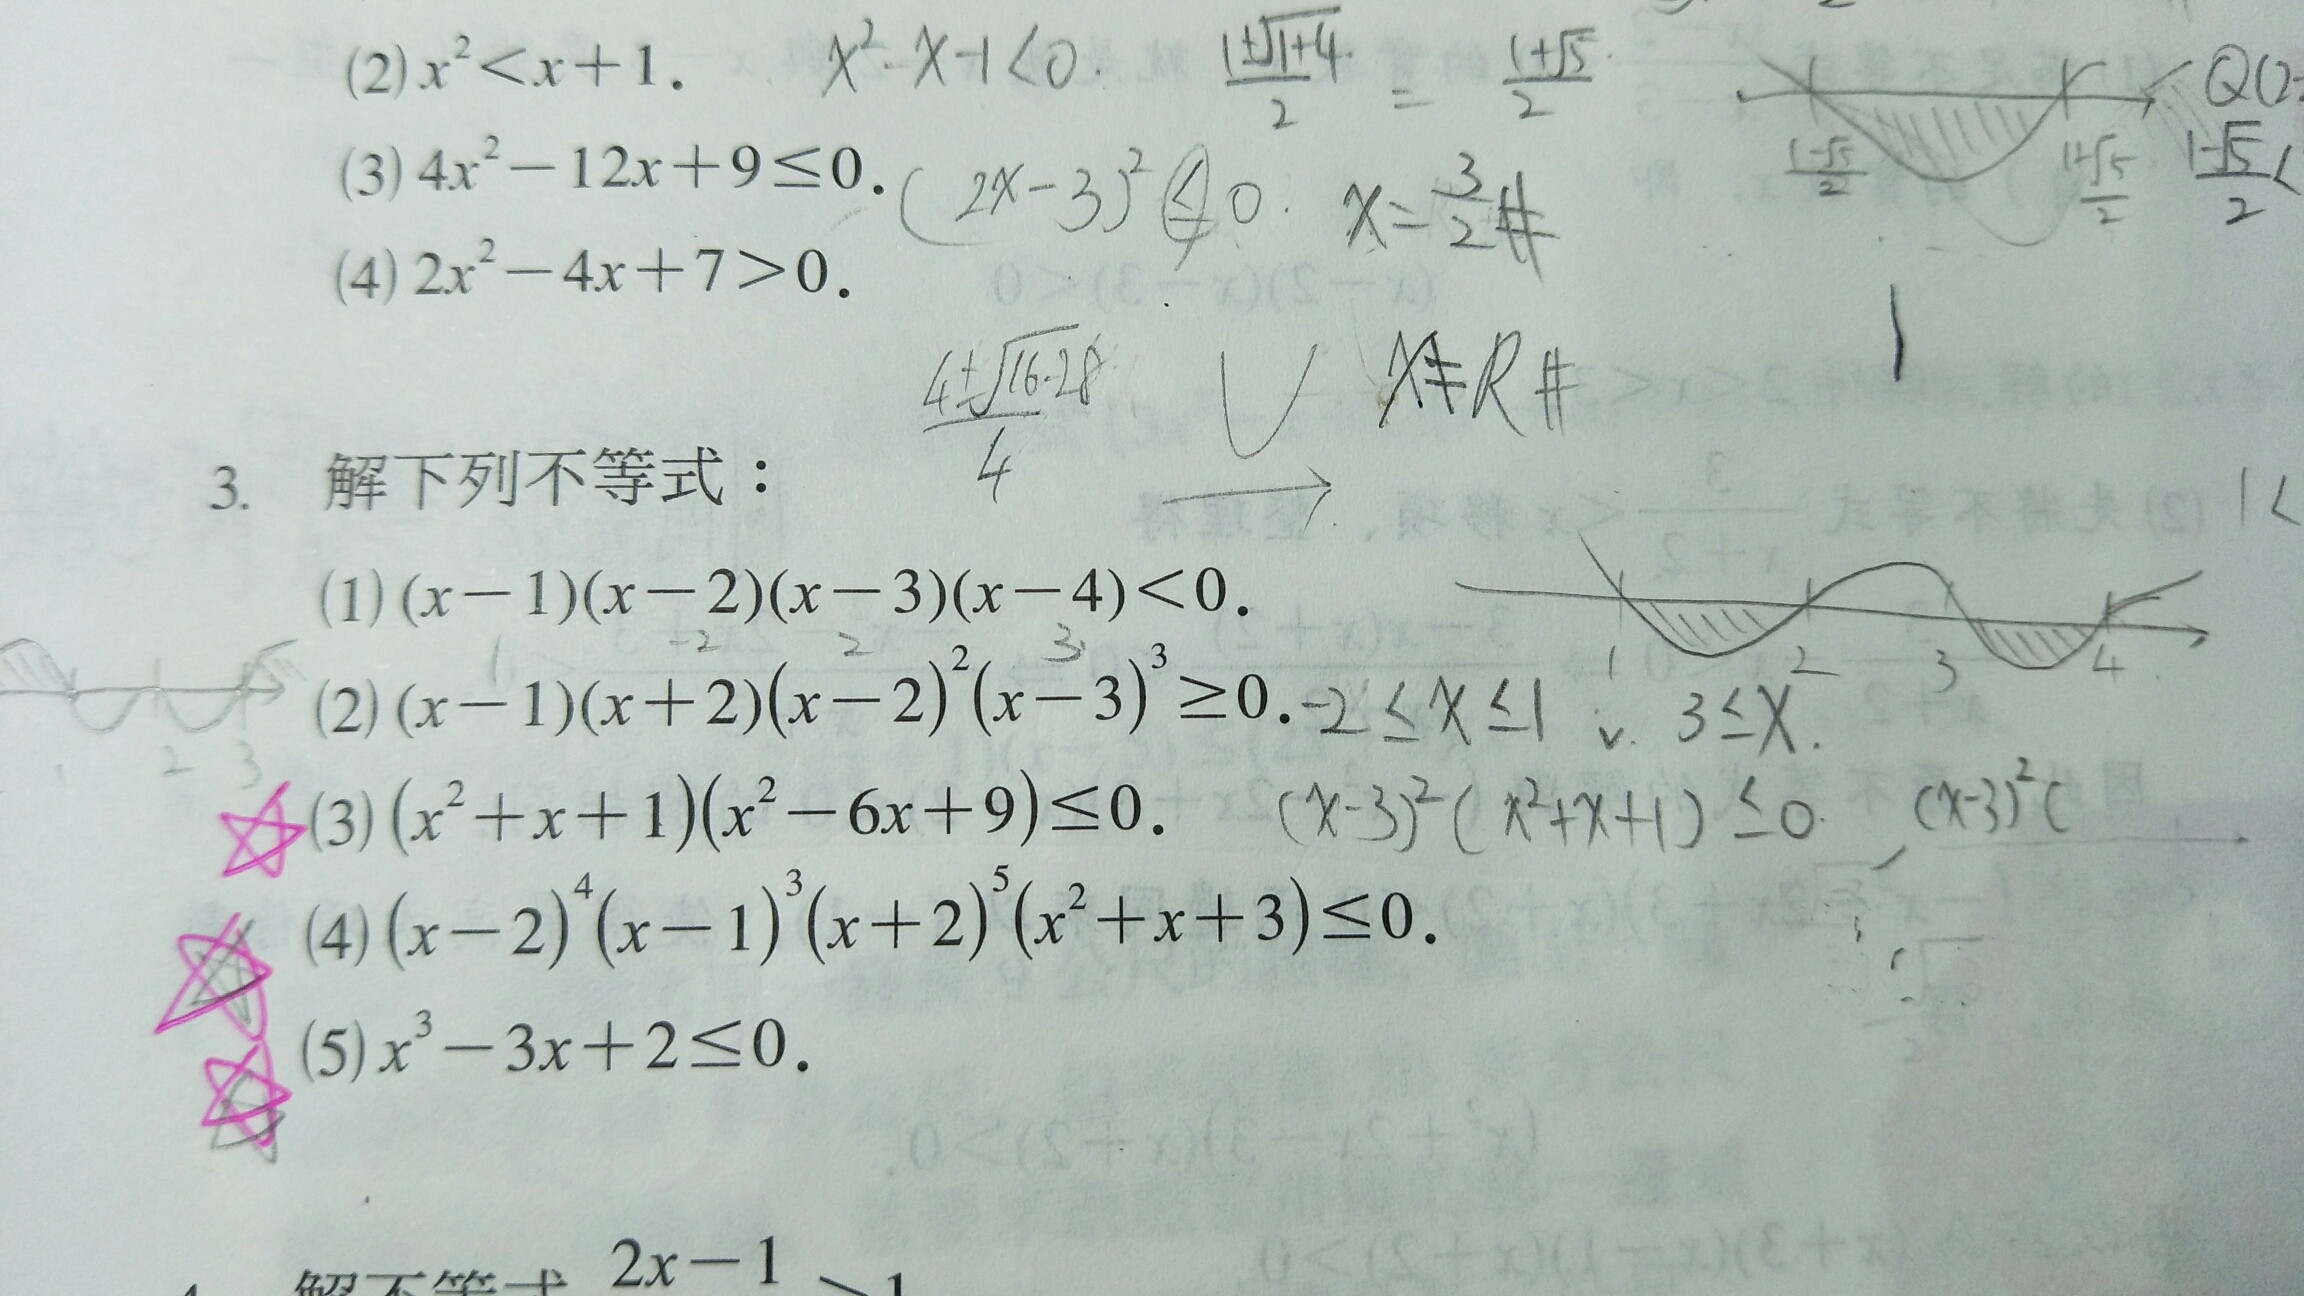 (2) x²<x+1. x²-x-1<0. (1±√(1+4))/2 = (1±√5)/2
(1-√5)/2 (1+√5)/2 (1-√5)/2 <
(3) 4x²-12x+9≤0. (2x-3)²≤0. x=3/2 #
(4) 2x²-4x+7>0.
(4±√(16-28))/4 x=R #
3. 解下列不等式：
1<
(1) (x-1)(x-2)(x-3)(x-4)<0.
1 2 3 4
1 -2 2 3
(2) (x-1)(x+2)(x-2)²(x-3)³≥0. -2≤x≤1 3≤x.
2 3
(3) (x²+x+1)(x²-6x+9)≤0. (x-3)²(x²+x+1)≤0. (x-3)²(
(4) (x-2)⁴(x-1)³(x+2)⁵(x²+x+3)≤0.
(5) x³-3x+2≤0.
解不等式 2x-1